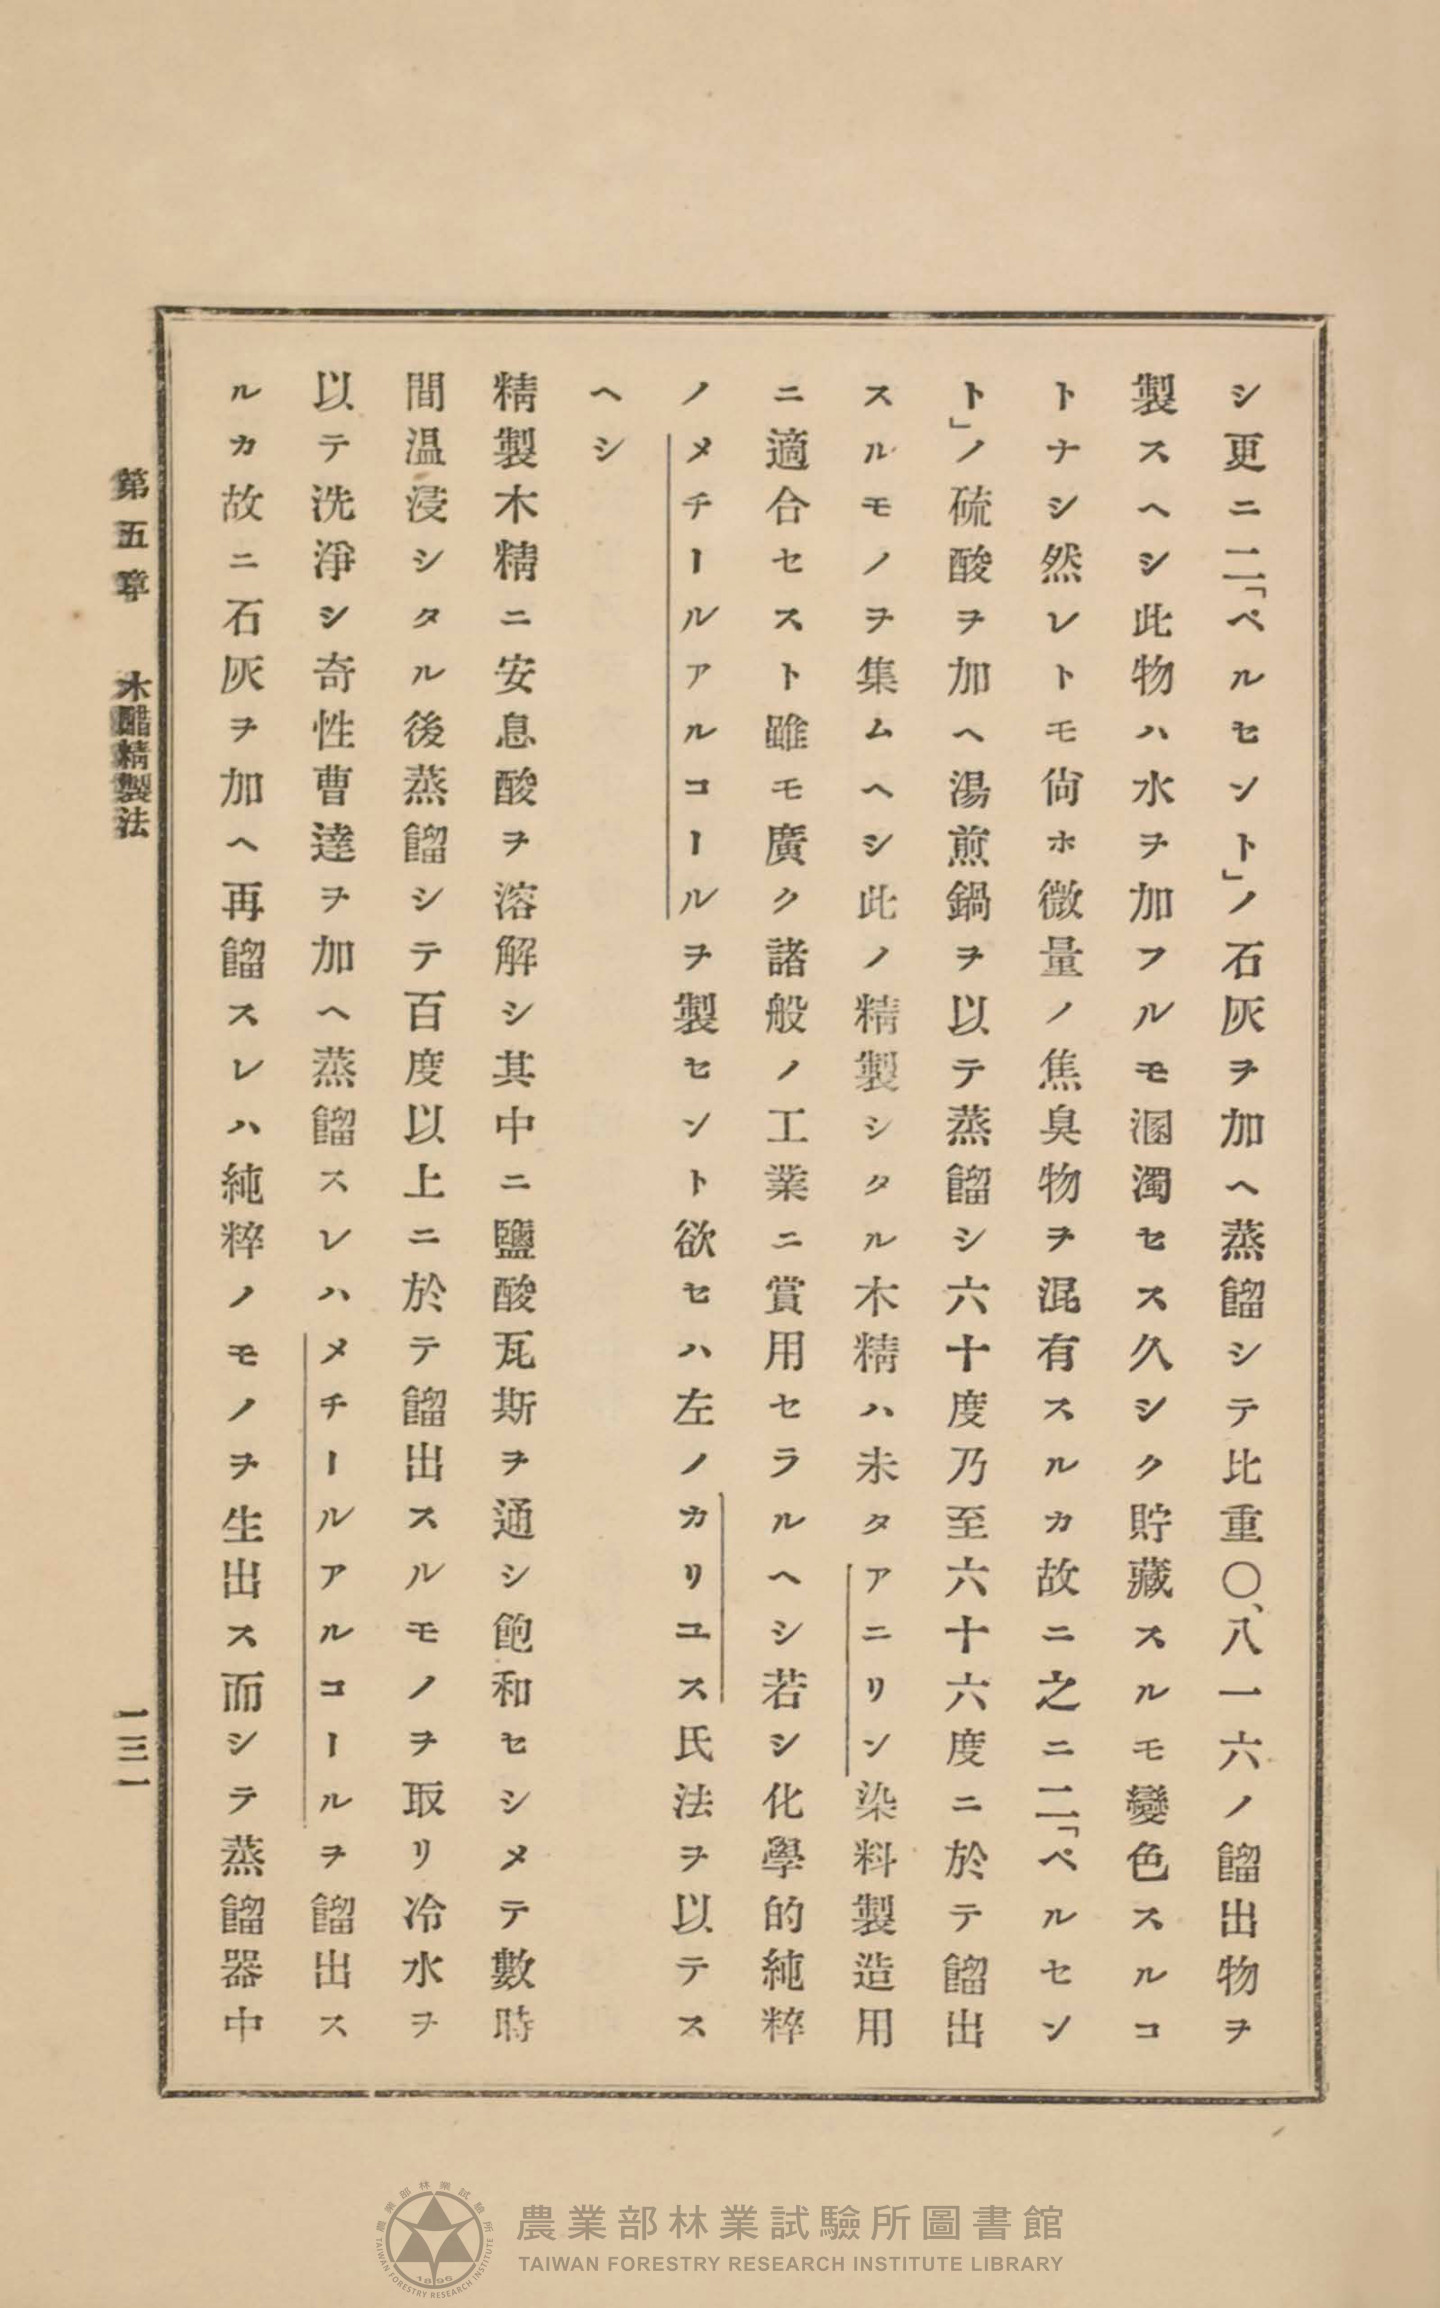 シ更ニ二「ペルセント」ノ石灰ヲ加ヘ蒸餾シテ比重〇、八一六ノ餾出物ヲ
製スヘシ此物ハ水ヲ加フルモ溷濁セス久シク貯藏スルモ變色スルコ
トナシ然レトモ尙ホ微量ノ焦臭物ヲ混有スルカ故ニ之ニ二「ペルセン
ト」ノ硫酸ヲ加ヘ湯煎鍋ヲ以テ蒸餾シ六十度乃至六十六度ニ於テ餾出
スルモノヲ集ムヘシ此ノ精製シタル木精ハ未タアニリン染料製造用
ニ適合セスト雖モ廣ク諸般ノ工業ニ賞用セラルヘシ若シ化學的純粹
ノメチールアルコールヲ製セント欲セハ左ノカリユス氏法ヲ以テス
ヘシ
精製木精ニ安息酸ヲ溶解シ其中ニ鹽酸瓦斯ヲ通シ飽和セシメテ數時
間温浸シタル後蒸餾シテ百度以上ニ於テ餾出スルモノヲ取リ冷水ヲ
以テ洗淨シ奇性曹達ヲ加ヘ蒸餾スレハメチールアルコールヲ餾出ス
ルカ故ニ石灰ヲ加ヘ再餾スレハ純粹ノモノヲ生出ス而シテ蒸餾器中
第五章 木醋精製法
一三一
農業部林業試驗所圖書館
TAIWAN FORESTRY RESEARCH INSTITUTE LIBRARY
農業部林業試驗所
TAIWAN FORESTRY RESEARCH INSTITUTE
1896